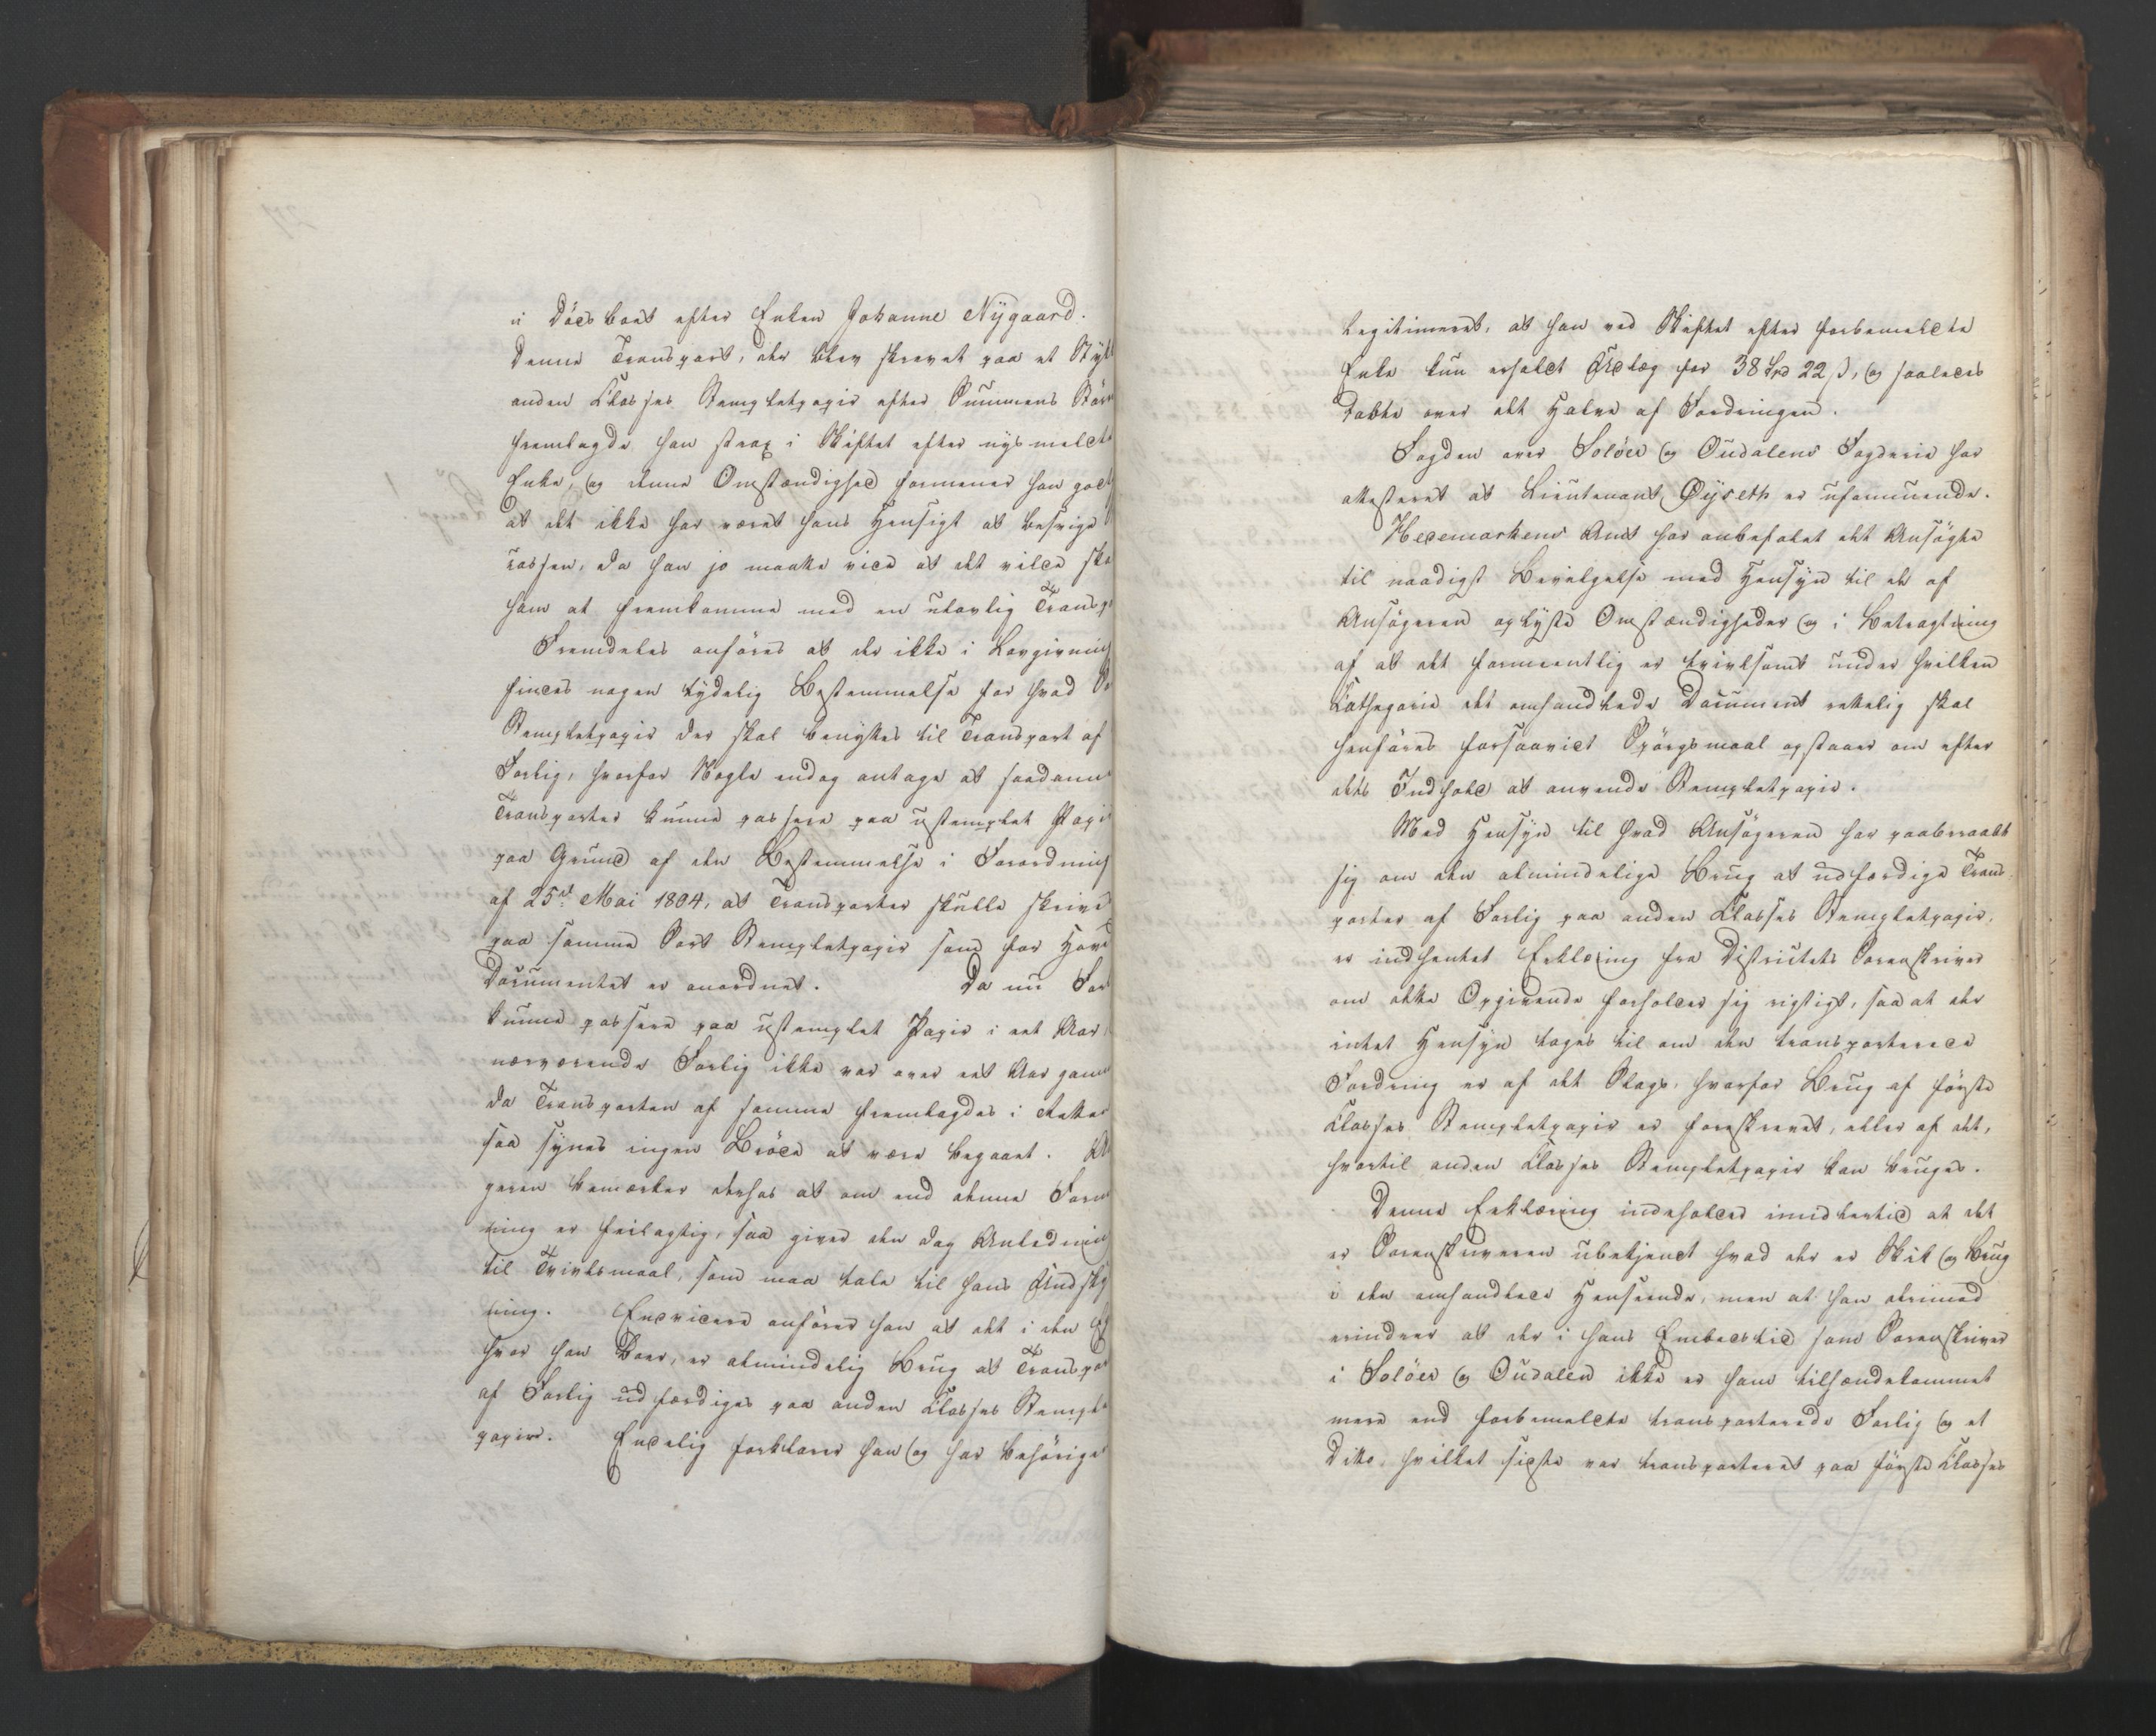 i Döesboet efter Enken Johanne Nÿgaard.
Denne Transport, der blev skrevet paa et Styk
anden Classes Stempletpapir efter Summens Stör
fremlagde han strax i Skiftet efter nysmeldte
Enke, og denne Omstændighed formener han godt
at det ikke har været hans Hensigt at besvige
cassen, da han jo maatte vide at det vilde ska
ham at fremkomme med en ulovlig Transp
Fremdeles anföres at der ikke i Lovgivning
findes nogen tydelig Bestemmelse for hvad
Stempletpapir der skal benyttes til Transport af
Forlig, hvorfor Nogle endog antage at saadanne
Transporter kunne passere paa ustemplet Papir
paa Grund af den Bestemmelse i Forordning
af 25de Mai 1804, at Transporter skulle skrives
paa samme Sort Stempletpapir som for Hoved
Documentet er anordnet. Da nu For
kunne passere paa ustemplet Papir i eet Aar,
nærværende Forlig ikke var over eet Aar gam
da Transporten af samme fremlagdes i Retten
saa synes ingen Bröde at være begaaet. An
geren bemærker derhos at om end denne Form
ning er feilagtig, saa giver den dog Anledning
til Tvivlsmaal, som maa tale til hans Undsky
ning. Endvidere anförer han at det i den
hvor han boer, er almindelig Brug at Transpor
af Forlig udfærdiges paa anden Classes Stemple
papir. Endelig forklarer han og har behörigen
legitimeret, at han ved Skiftet efter forbemeldte
Enke kun erholdt Udlæg for 38 Spd 22 ß, og saaledes
tabte over det Halve af Fordringen.
Fogden over Solöer og Oudalens Fogderie har
attesteret at Lieutenant Öyseth er uformuende.
Hedemarkens Amt har anbefalet det Ansögte
til naadigst Bevilgelse med Hensyn til de af
Ansögeren oplyste Omstændigheder og i Betragtning
af at det formeentlig er tvivlsomt under hvilken
Cathegorie det omhandlede Document rettelig skal
henföres forsaavidt Spörgsmaal opstaaer om efter
dets Indhold at anvende Stempletpapir.
Med Hensyn til hvad Ansögeren har paaberaabt
sig om den almindelige Brug at udfærdige Trans
porter af Forlig paa anden Classes Stempletpapir,
er indhentet Erklæring fra Districtets Sorenskriver
om dette Opgivende forholder sig rigtigt, saa at der
intet Hensyn tages til om den transporterede
Fordring er af det Slags, hvorfor Brug af förste
Classes Stempletpapir er foreskrevet, eller af det,
hvortil anden Classes Stempletpapir kan bruges.
Denne Erklæring indeholder imidlertid at det
er Sorenskriveren ubekjendt hvad der er Skik og Brug
i den omhandlede Henseende, men at han derimod
erindrer at der i hans Embedstid som Sorenskriver
i Solöer og Oudalen ikke er ham tilhændekommet
mere end forbemeldte transporterede Forlig og et
Ditto, hvilket sidste var transporteret paa förste Classes